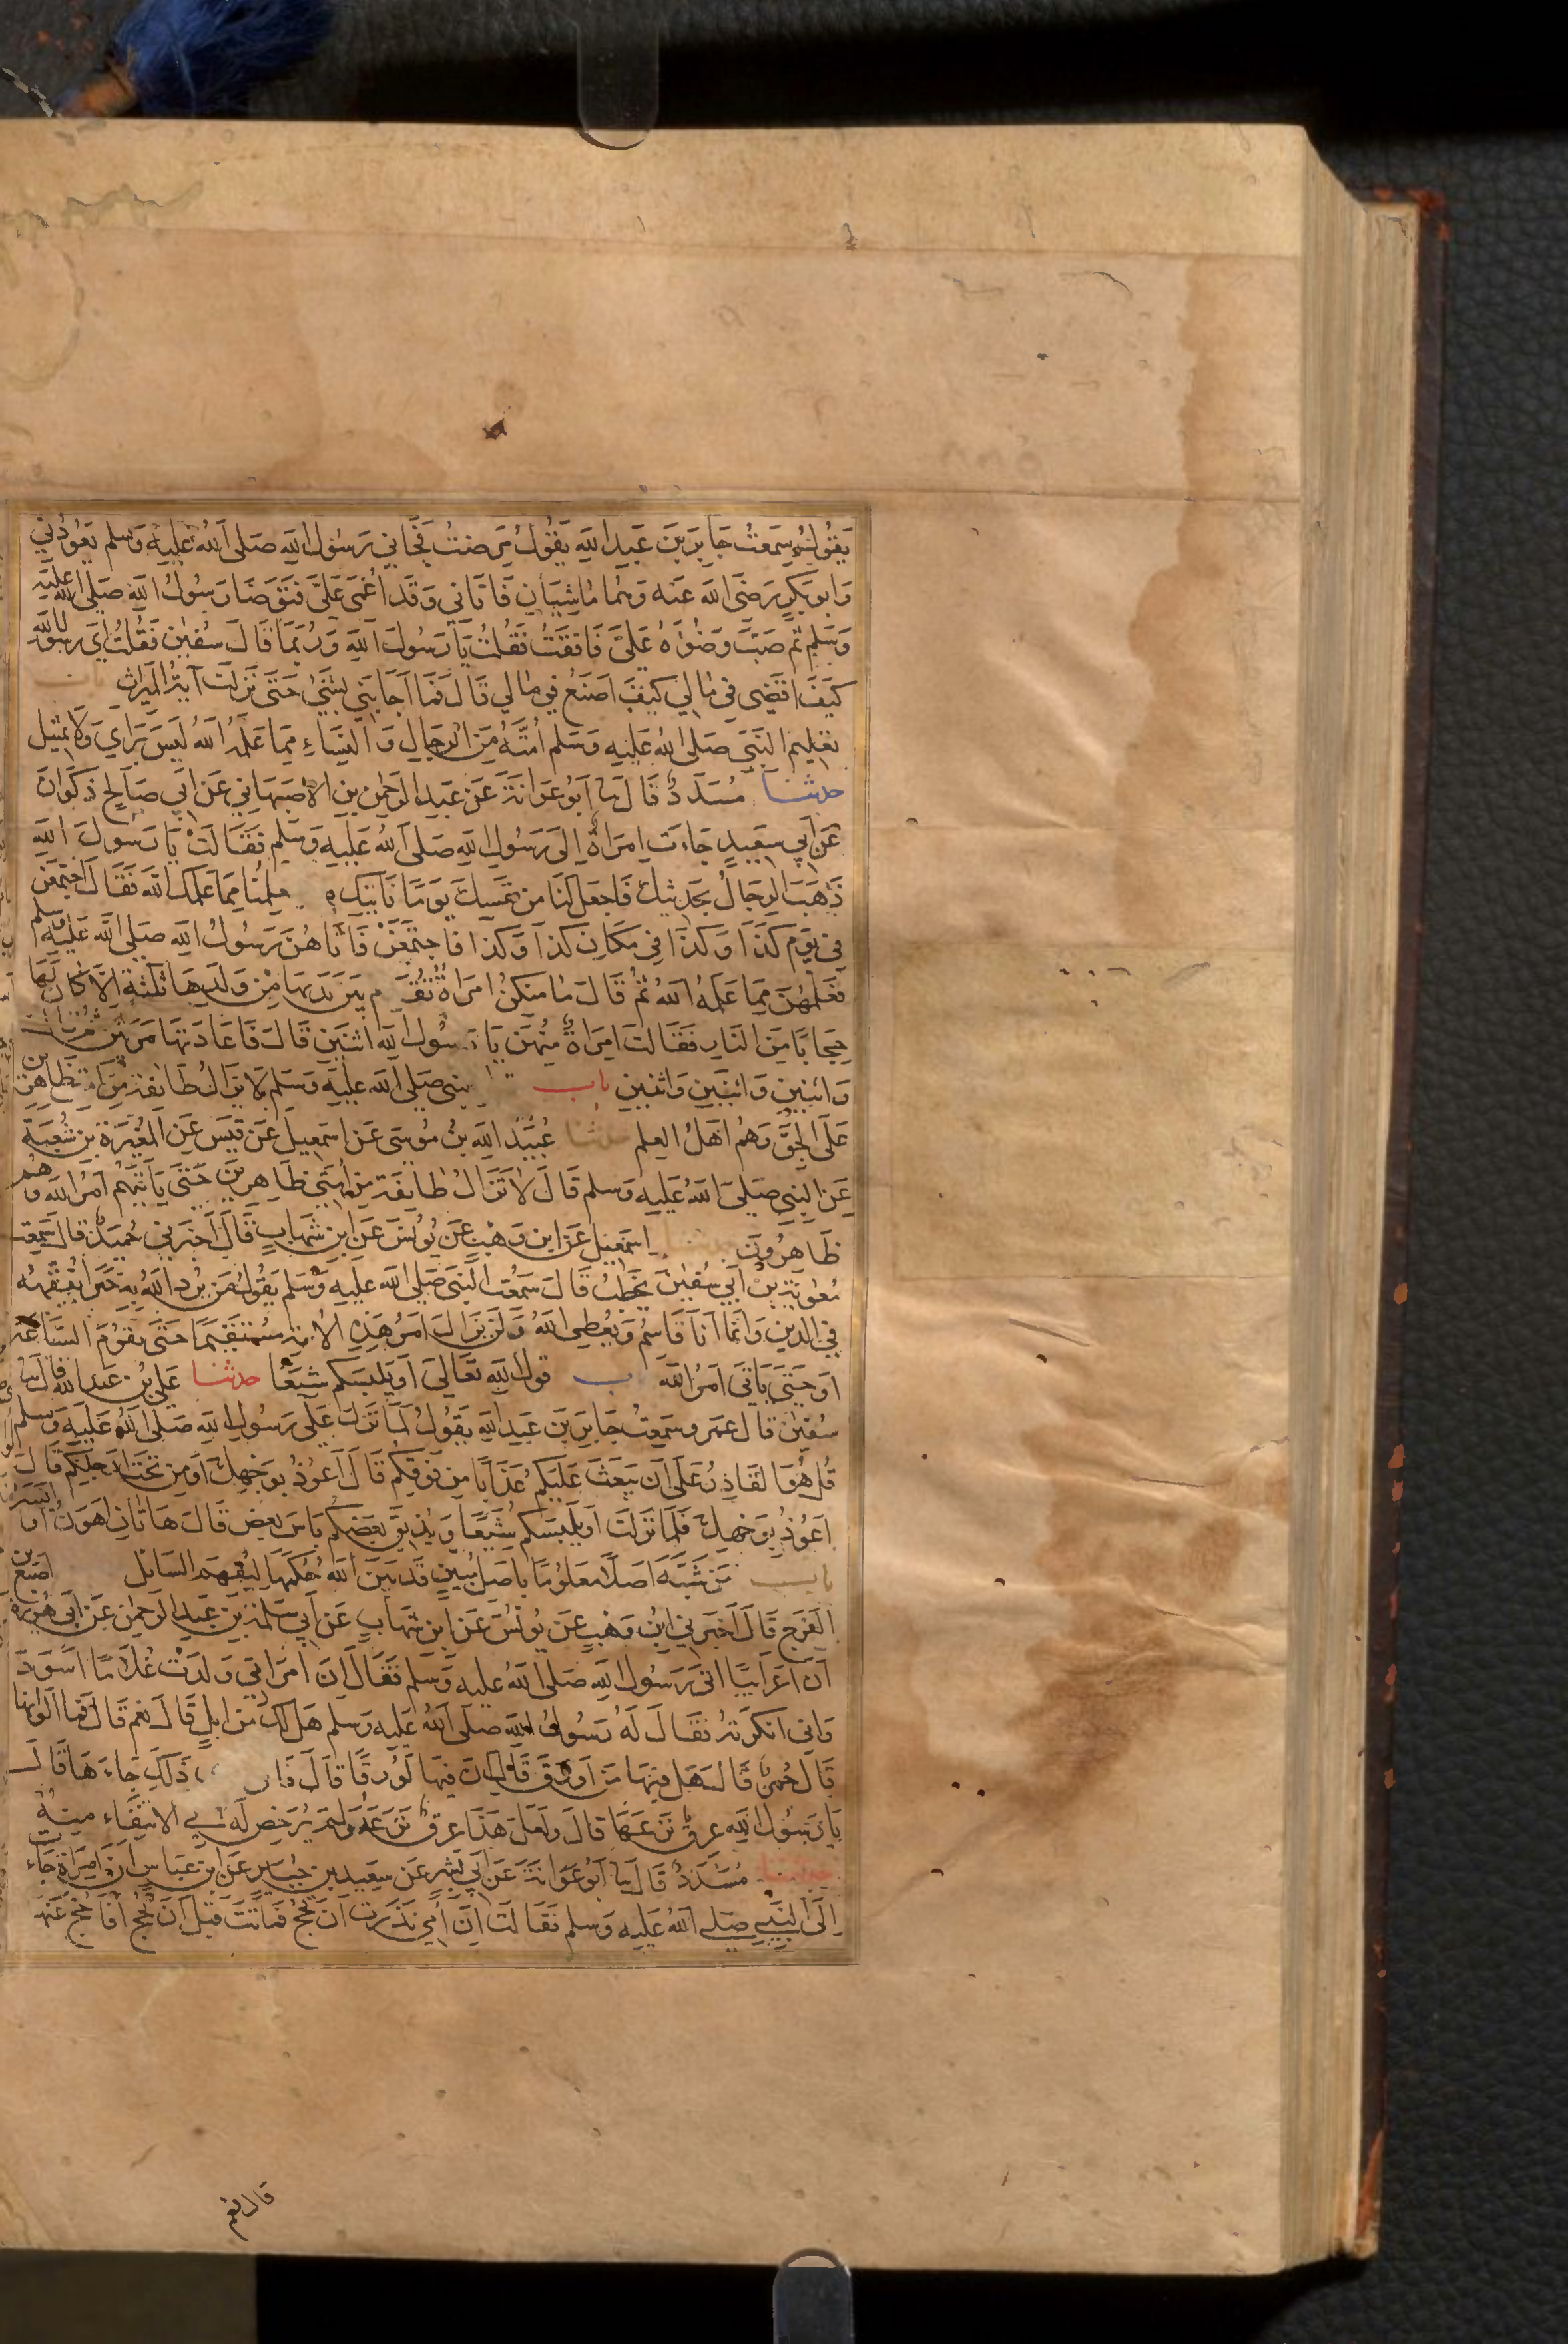 يقول سمعت جابر بن عبد الله يقول مرضت فجاءني رسول الله صلى الله عليه وسلم يعودني
وابو بكر رضى الله عنه وهما ماشيان فاتاني وقد اغمى على فتوضا رسول الله صلى الله عليه
وسلم ثم صب وضوءه على فافقت فقلت يا رسول الله وربما قال سفين فقلت اى رسول الله
كيف اقضى في مالي كيف اصنع في مالي قال فما اجابني بشيء حتى نزلت آية الميراث باب
تعليم النبي صلى الله عليه وسلم امته من الرجال والنساء مما علمه الله ليس براي ولا تمثيل
حدثنا مسدد قال نا ابو عوانة عن عبد الرحمن بن الاصبهاني عن ابي صالح ذكوان
عن ابي سعيد جاءت امراة الى رسول الله صلى الله عليه وسلم فقالت يا رسول الله
ذهب الرجال بحديثك فاجعل لنا من نفسك يوما ناتيك فيه تعلمنا مما علمك الله فقال اجتمعن
في يوم كذا وكذا في مكان كذا وكذا فاجتمعن فاتاهن رسول الله صلى الله عليه وسلم
فعلمهن مما علمه الله ثم قال ما منكن امراة تقدم بين يديها من ولدها ثلثة الا كان لها
حجابا من النار فقالت امراة منهن يا رسول الله اثنين قال فاعادتها مرتين ثم قال
واثنين واثنين واثنين باب النبي صلى الله عليه وسلم لا يزال طايفة من امتي ظاهرين
على الحق وهم اهل العلم حدثنا عبيد الله بن موسى عن اسمعيل عن قيس عن المغيرة بن شعبة
عن النبي صلى الله عليه وسلم قال لا تزال طايفة من امتي ظاهرين حتى ياتيهم امر الله وهم
ظاهرون حدثنا اسمعيل عن ابن وهب عن يونس عن ابن شهاب قال اخبرني حميد قال سمعت
معوية بن ابي سفين يخطب قال سمعت النبي صلى الله عليه وسلم يقول من يرد الله به خيرا يفقهه
في الدين وانما انا قاسم ويعطى الله ولن يزال امر هذه الامة مستقيما حتى تقوم الساعة
او حتى ياتى امر الله باب قول الله تعالى او يلبسكم شيعا حدثنا على بن عبد الله قال نا
سفين قال عمرو سمعت جابر بن عبد الله يقول لما نزل على رسول الله صلى الله عليه وسلم
قل هو القادر على ان يبعث عليكم عذابا من فوقكم قال اعوذ بوجهك او من تحت ارجلكم قال
اعوذ بوجهك فلما نزلت او يلبسكم شيعا ويذيق بعضكم باس بعض قال هاتان اهون او ايسر
باب من شبه اصلا معلوما باصل مبين قد بين الله حكمهما ليفهم السائل اصبغ بن
الفرج قال اخبرني ابن وهب عن يونس عن ابن شهاب عن ابي سلمة بن عبد الرحمن عن ابي هريرة
ان اعرابيا اتى رسول الله صلى الله عليه وسلم فقال ان امراتي ولدت غلاما اسود
واني انكرته فقال له رسول الله صلى الله عليه وسلم هل لك من ابل قال نعم قال فما الوانها
قال حمر قال هل فيها من اورق قال ان فيها لورقا قال فانى ذلك جاءها قال
يا رسول الله عرق نزعها قال ولعل هذا عرق نزعه ولم يرخص له في الانتفاء منه
حدثنا مسدد قال نا ابو عوانة عن ابي بشر عن سعيد بن جبير عن ابن عباس ان امراة جاءت
الى النبي صلى الله عليه وسلم فقالت ان امي نذرت ان تحج فماتت قبل ان تحج افاحج عنها
قال نعم